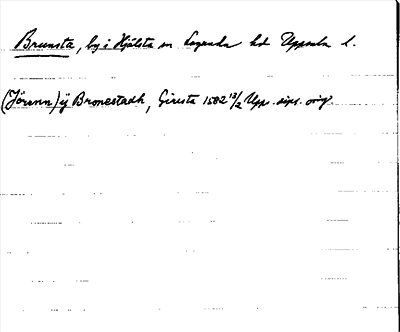 Brunsta, by i Hjälsta sn Lagunda hd Uppsala l.
(Jörenn) ÿ Bronestadh, Girista 1582 13/2 Upps. dipl. orig.